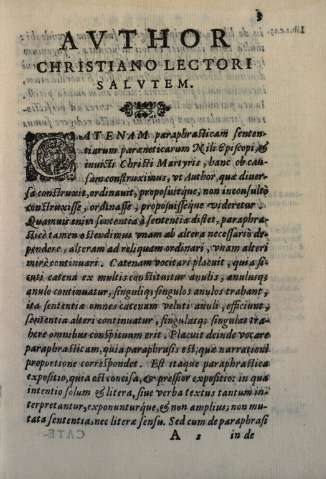 3
AVTHOR
CHRISTIANO LECTORI
SALVTEM.
CATENAM paraphrasticam senten-
tiarum paræneticarum Nili Episcopi, &
inuicti Christi Martyris, hanc ob cau-
sam construximus, vt Author, quæ diuer-
sa construxit, ordinauit, proposuitque, non inconsultò
construxisse, ordinasse, proposuisseque videretur.
Quamuis enim sententia à sententia distet, paraphra-
sticè tamen ostendimus vnam ab altera necessariò de-
pendere, alteram ad reliquam ordinari, vnam alteri
mirè continuari. Catenam vocitari placuit, quia si-
cuti catena ex multis constituitur anulis, anulusq;
anulo continuatur, singuliq; singulos anulos trahunt,
ita sententiæ omnes catenam veluti anuli, efficiunt,
sententia alteri continuatur, singulæq; singulas tra-
here omnibus conspicuum erit. Placuit deinde vocare
paraphrasticam, quia paraphrasis est, quæ narrationi
proportione correspondet. Est itaque paraphrastica
expositio, quia est concisa, & pressior expositio: in qua
intentio solum & litera, siue verba textus tantum in-
terpretantur, exponunturque, & non amplius: non mu-
tata sententia, nec literæ sensu. Sed cum de paraphrasi
A 2 in de
CATE-